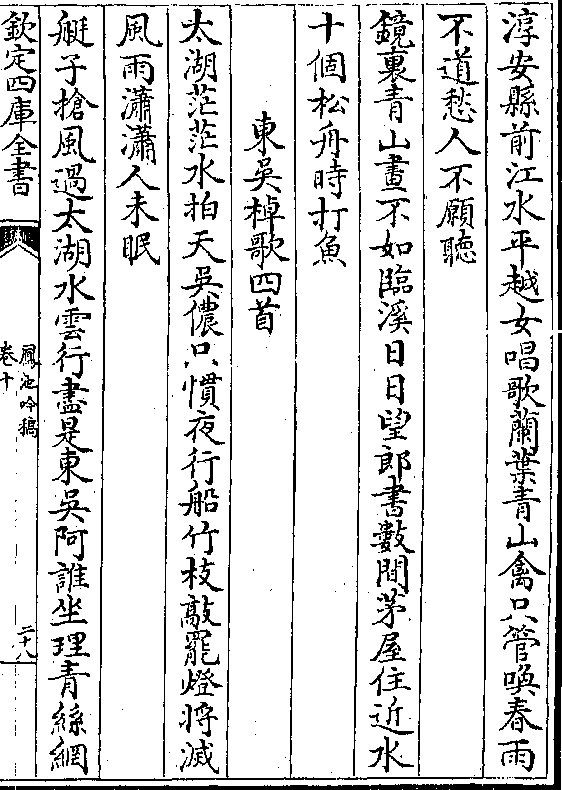 淳安縣前江水平越女唱歌蘭葉青山禽只管喚春雨
不道愁人不願聽
鏡裏青山畫不如臨溪日日望郎書數間茅屋住近水
十個松舟時打魚
東吳棹歌四首
太湖茫茫水拍天吳儂只慣夜行船竹枝敲罷燈將滅
風雨瀟瀟人未眠
艇子搶風過太湖水雲行盡是東吳阿誰坐理青絲網
欽定四庫全書
鳳池吟稿
卷十
二十八